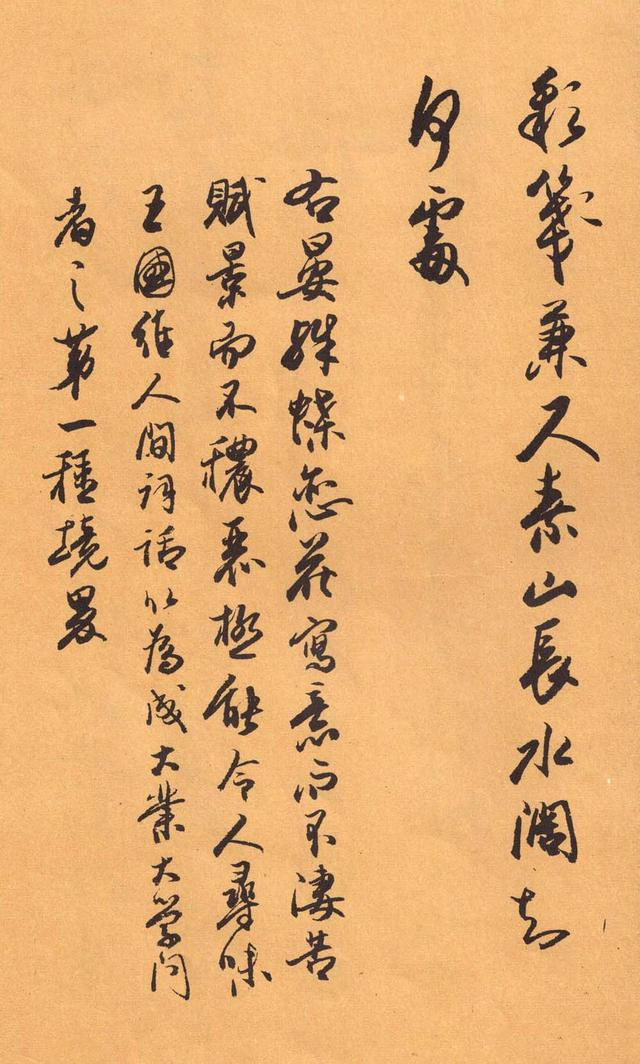 彩箋兼尺素山長水濶知
何處
右晏殊蝶恋花寫意而不淒苦
賦景而不穠麗極能令人尋味
王國維人間詞話以為成大業大学问
者之第一種境界